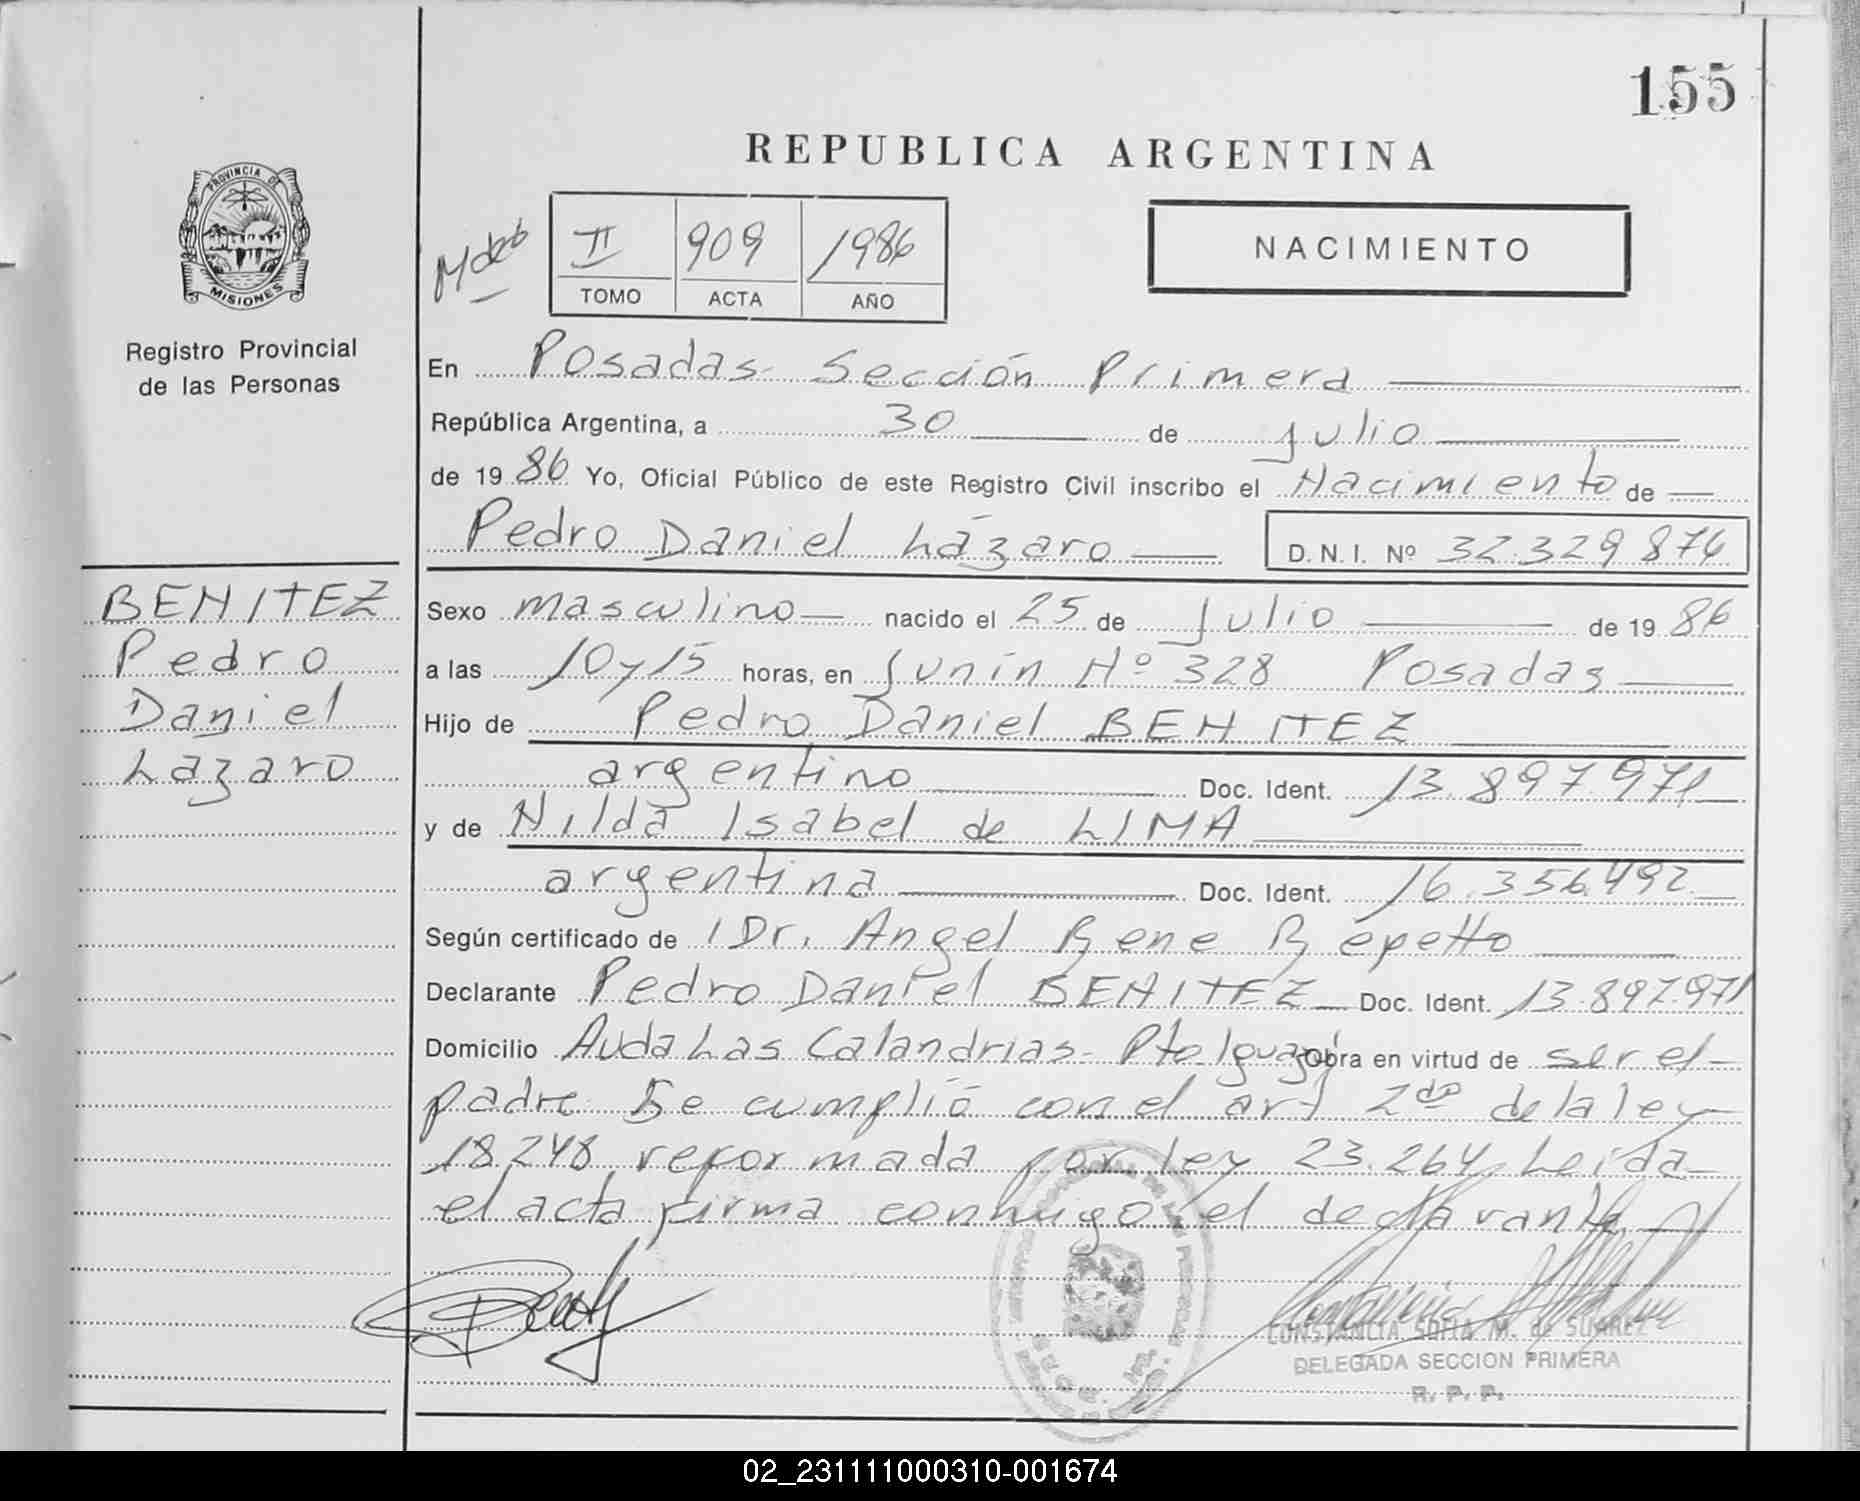 155
REPUBLICA ARGENTINA
PROVINCIA DE
MISIONES
Registro Provincial
de las Personas
II 909 1986
TOMO ACTA AÑO
NACIMIENTO
En Posadas- Sección Primera
República Argentina, a 30 de Julio
de 19 86 Yo, Oficial Público de este Registro Civil inscribo el Nacimiento de
Pedro Daniel Lázaro D.N.I. Nº 32.329.874
BENITEZ
Pedro
Daniel
Lazaro
Sexo masculino nacido el 25 de Julio de 19 86
a las 10 y 15 horas, en Junin Nº 328 Posadas
Hijo de Pedro Daniel BENITEZ
argentino Doc. Ident. 13.897.971
y de Nilda Isabel de LIMA
argentina Doc. Ident. 16.356.492
Según certificado de Dr. Angel Rene Repetto
Declarante Pedro Daniel BENITEZ Doc. Ident. 13.897.971
Domicilio Avda Las Calandrias- Pto Iguazú Obra en virtud de ser el
padre Se cumplió con el art 2do de la ley
18.248 reformada por ley 23.264 Leida
el acta firma conmigo el declarante
CONSTANCIA SOFIA M. de SUAREZ
DELEGADA SECCION PRIMERA
R. P. P.
02_231111000310-001674